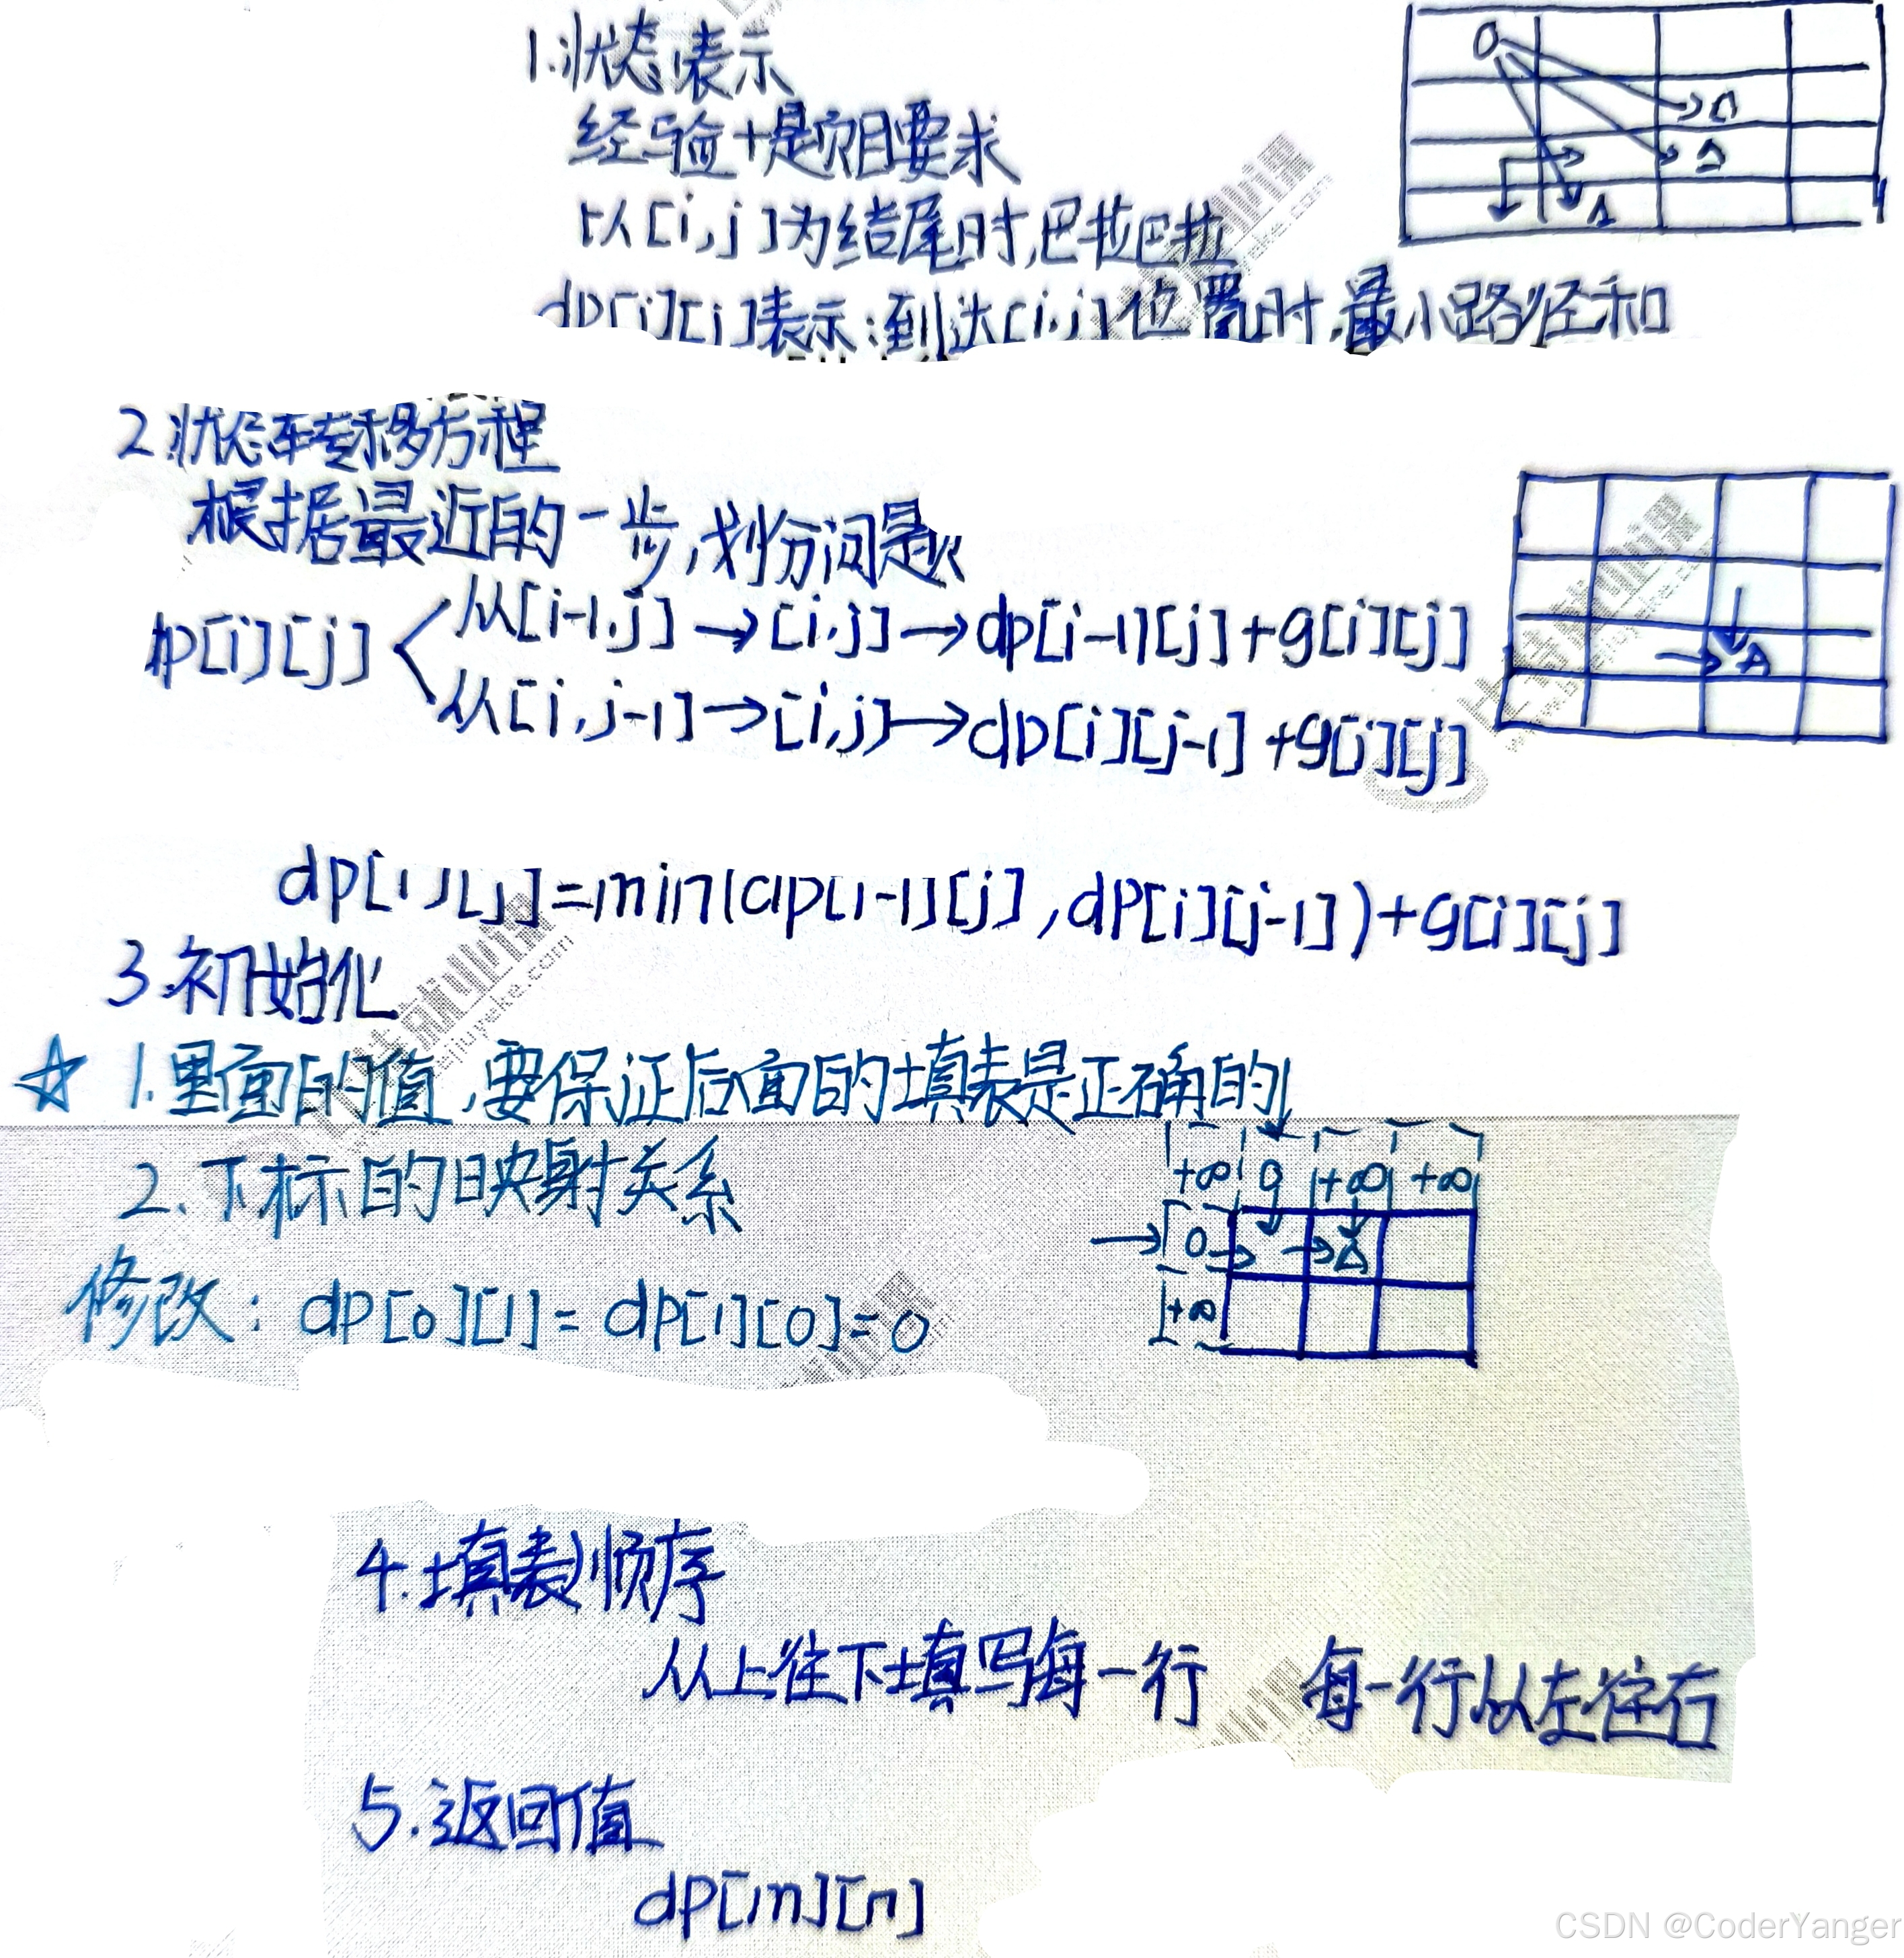 1.状态表示
经验+题目要求
以[i,j]为结尾时,巴拉巴拉
dp[i][j]表示:到达[i,j]位置时,最小路径和
2.状态转移方程
根据最近的一步,划分问题
dp[i][j]
从[i-1,j]→[i,j]→dp[i-1][j]+g[i][j]
从[i,j-1]→[i,j]→dp[i][j-1]+g[i][j]
dp[i][j]=min(dp[i-1][j],dp[i][j-1])+g[i][j]
3.初始化
☆ 1.里面的值,要保证后面的填表是正确的
2.下标的映射关系
+∞ 0 +∞ +∞
0
+∞
修改: dp[0][1]=dp[1][0]=0
4.填表顺序
从上往下填写每一行 每一行从左往右
5.返回值
dp[m][n]
CSDN @CoderYanger